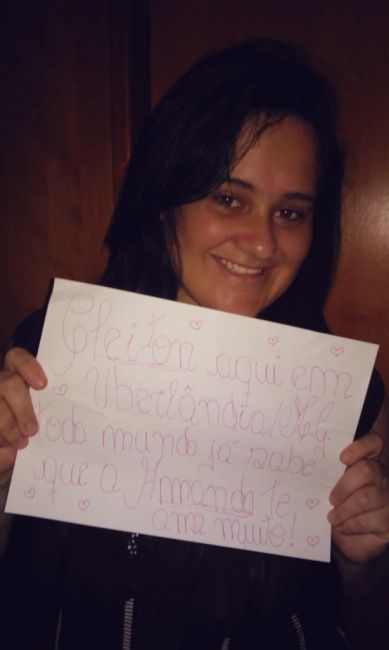 Cleiton aqui em
Uberlândia/MG
todo mundo já sabe
que a Amanda te
ama muito!